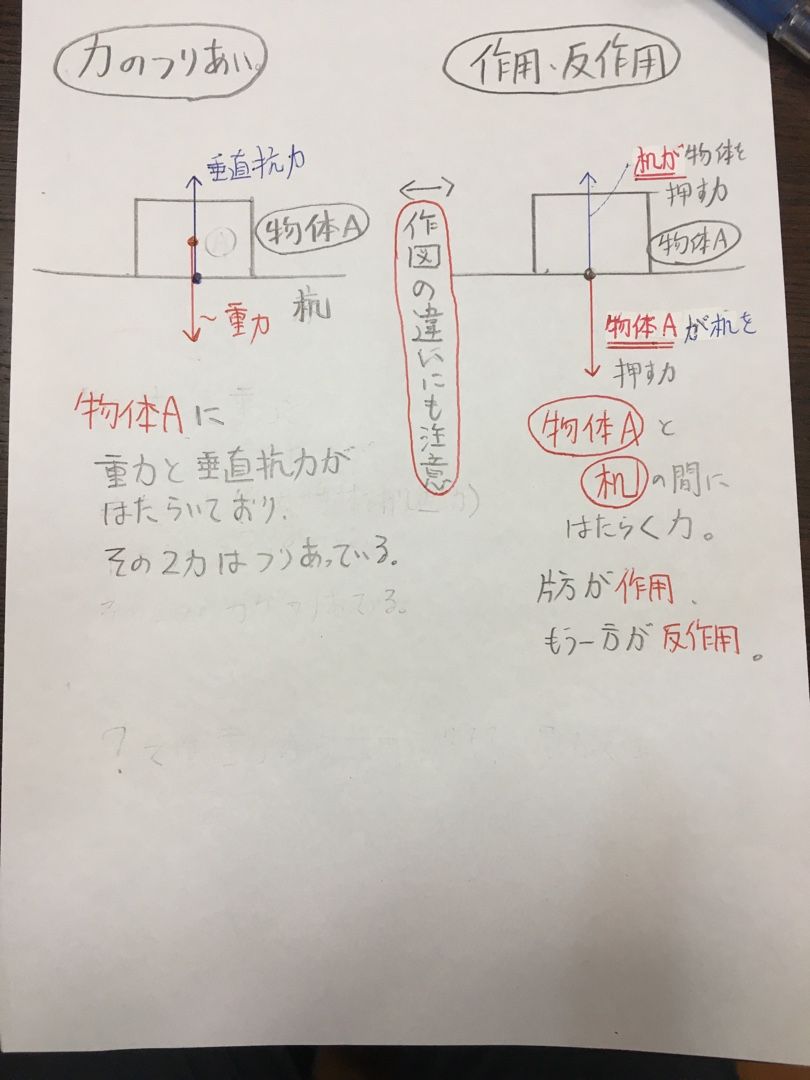 力のつりあい。
垂直抗力
A
物体A
〜重力
机
物体Aに
重力と垂直抗力が
はたらいており、
その2力はつりあっている。
作図の違いにも注意
作用・反作用
机が物体を
押す力
物体A
物体Aが机を
押す力
物体Aと
机の間に
はたらく力。
片方が作用、
もう一方が反作用。